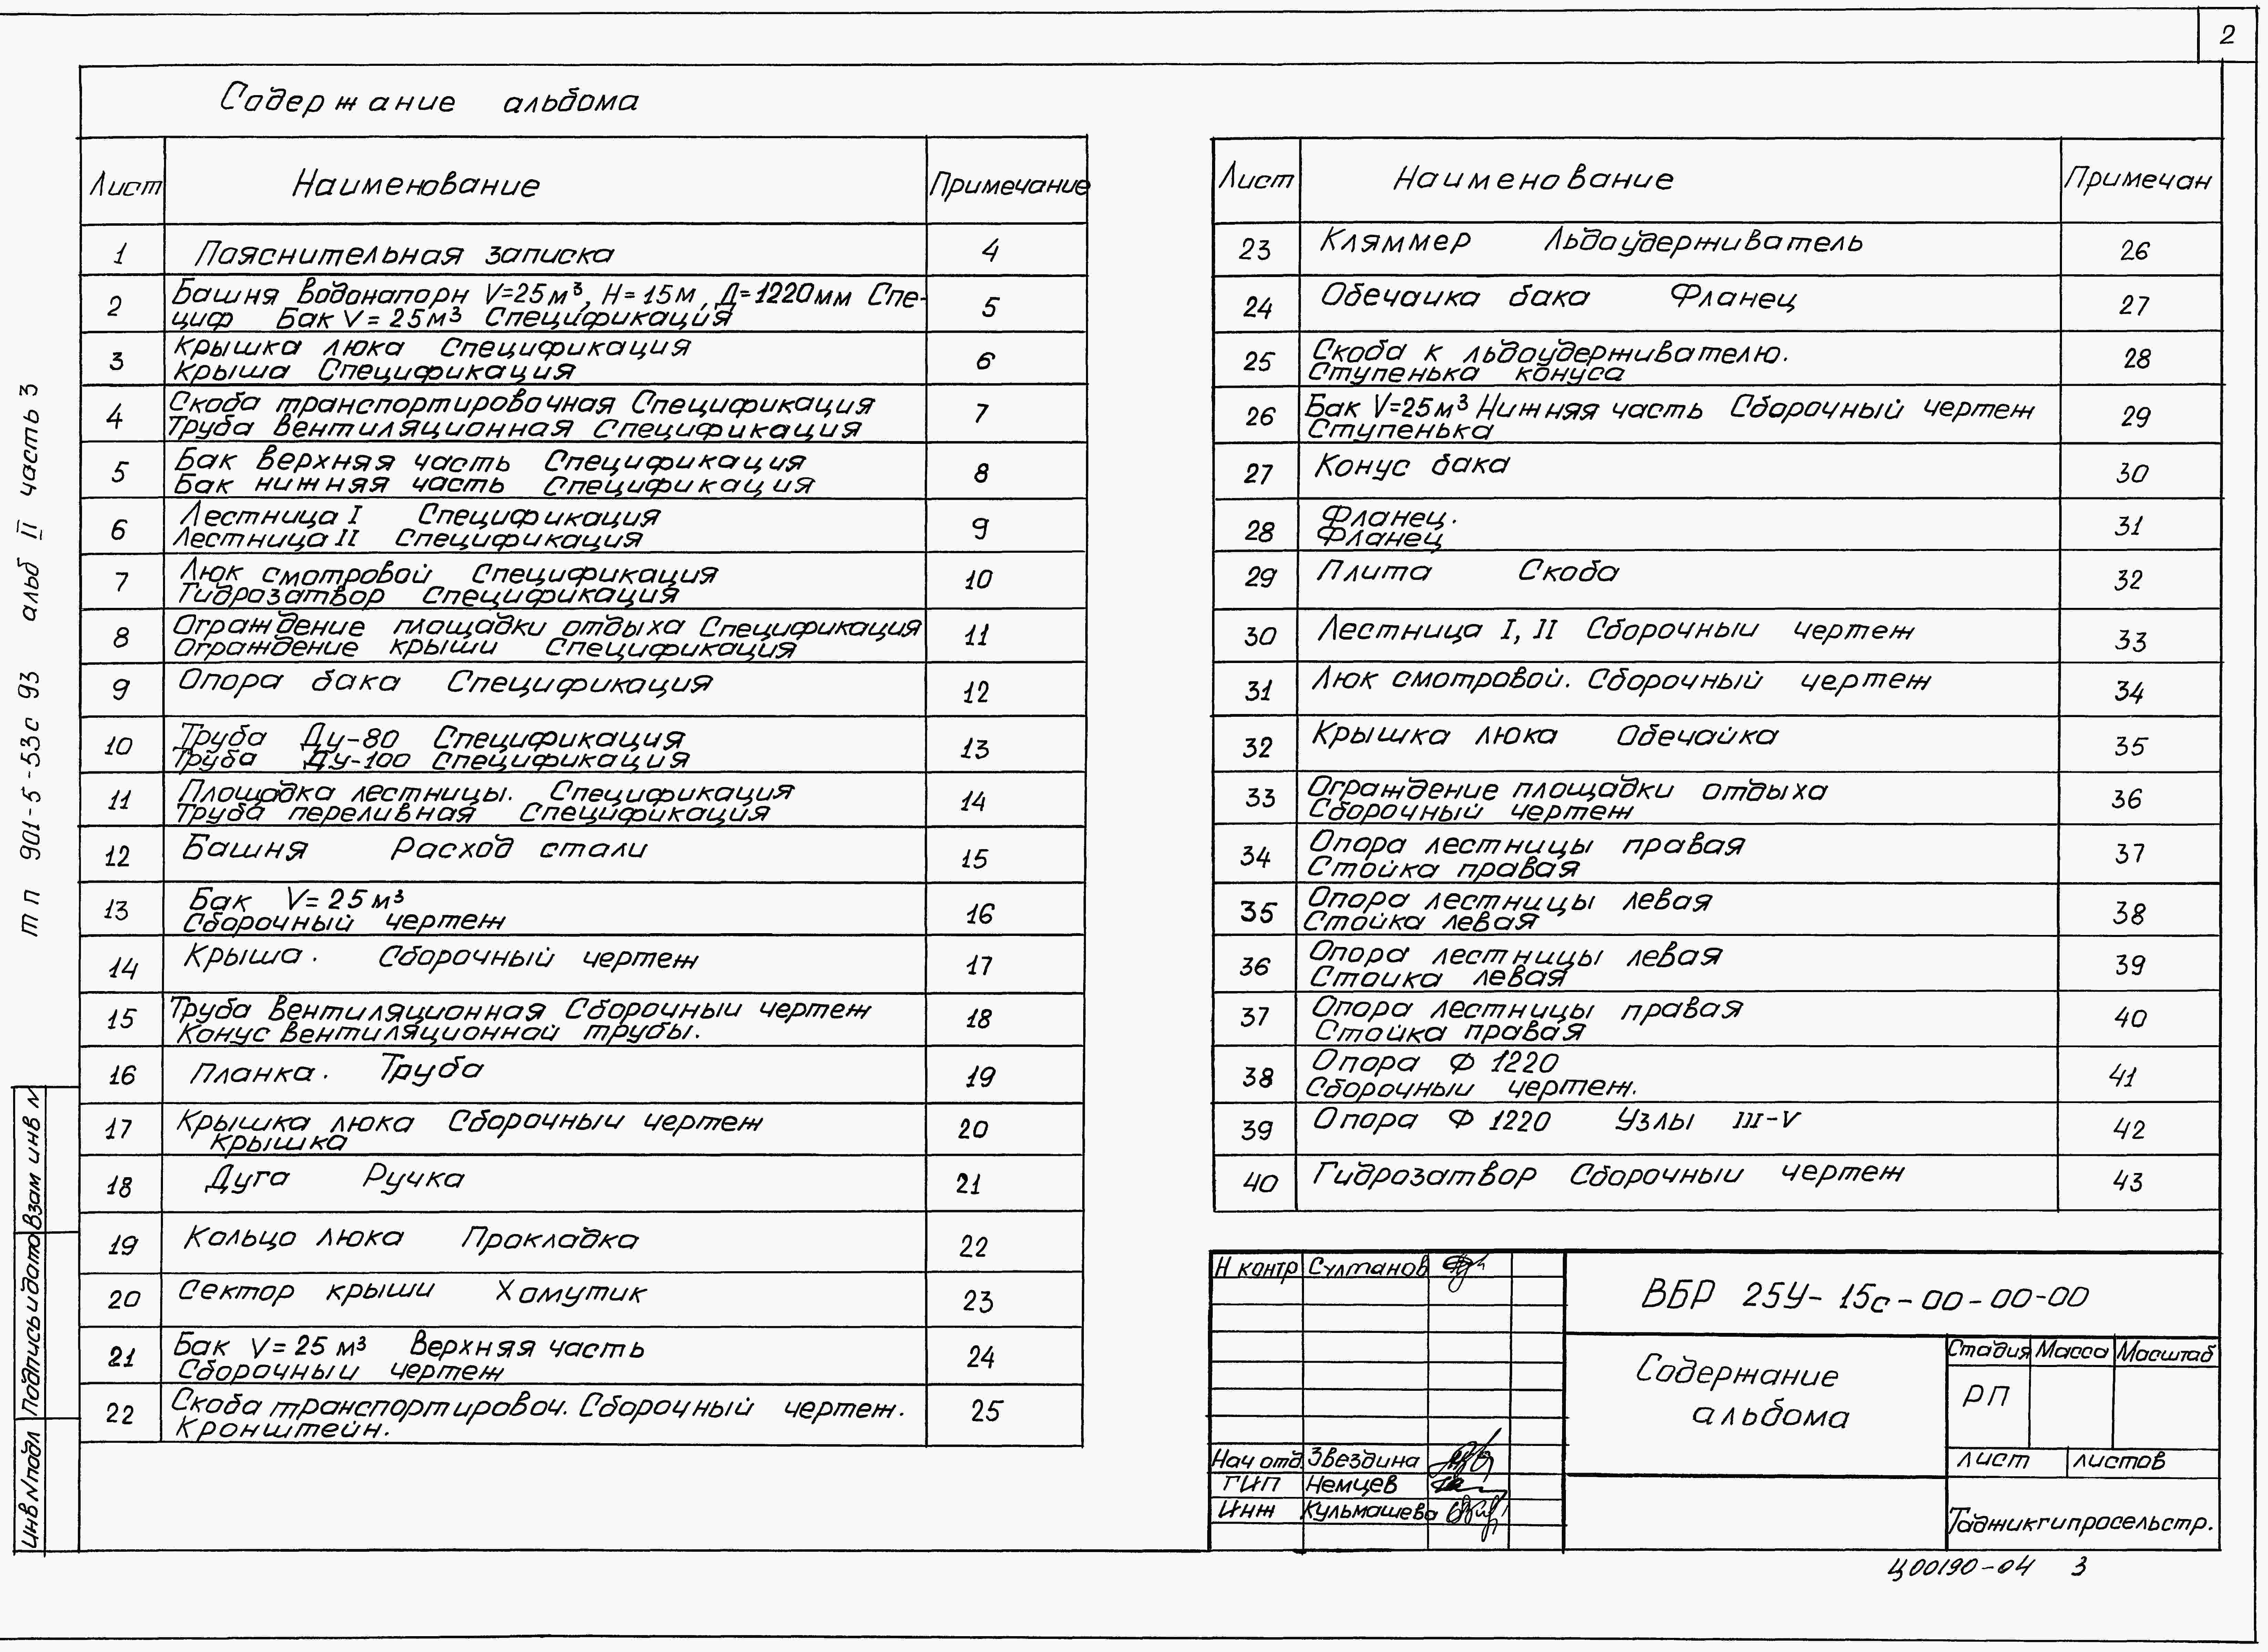 2
Содержание альбома
Лист Наименование Примечание
1 Пояснительная записка 4
2 Башня водонапорн V=25м³, Н=15м, Д=1220мм Спе-
циф Бак V=25м³ Спецификация 5
3 Крышка люка Спецификация
Крыша Спецификация 6
4 Скоба транспортировочная Спецификация
Труба вентиляционная Спецификация 7
5 Бак верхняя часть Спецификация
Бак нижняя часть Спецификация 8
6 Лестница I Спецификация
Лестница II Спецификация 9
7 Люк смотровой Спецификация
Гидрозатвор Спецификация 10
8 Ограждение площадки отдыха Спецификация
Ограждение крыши Спецификация 11
9 Опора бака Спецификация 12
10 Труба Ду-80 Спецификация
Труба Ду-100 Спецификация 13
11 Площадка лестницы. Спецификация
Труба переливная Спецификация 14
12 Башня Расход стали 15
13 Бак V=25м³
Сборочный чертеж 16
14 Крыша. Сборочный чертеж 17
15 Труба вентиляционная Сборочный чертеж
Конус вентиляционной трубы. 18
16 Планка. Труба 19
17 Крышка люка Сборочный чертеж
крышка 20
18 Дуга Ручка 21
19 Кольцо люка Прокладка 22
20 Сектор крыши Хомутик 23
21 Бак V=25м³ Верхняя часть
Сборочный чертеж 24
22 Скоба транспортировоч. Сборочный чертеж.
Кронштейн. 25
Лист Наименование Примечан
23 Кляммер Льдоудерживатель 26
24 Обечаика бака Фланец 27
25 Скоба к льдоудерживателю.
Ступенька конуса 28
26 Бак V=25м³ Нижняя часть Сборочный чертеж
Ступенька 29
27 Конус бака 30
28 Фланец.
Фланец 31
29 Плита Скоба 32
30 Лестница I, II Сборочный чертеж 33
31 Люк смотровой. Сборочный чертеж 34
32 Крышка люка Обечайка 35
33 Ограждение площадки отдыха
Сборочный чертеж 36
34 Опора лестницы правая
Стойка правая 37
35 Опора лестницы левая
Стойка левая 38
36 Опора лестницы левая
Стоика левая 39
37 Опора лестницы правая
Стойка правая 40
38 Опора Ф 1220
Сборочный чертеж. 41
39 Опора Ф 1220 Узлы III-V 42
40 Гидрозатвор Сборочный чертеж 43
Н контр Султанов
Нач отд Звездина
ГИП Немцев
Инж Кульмашева
ВБР 25У-15с-00-00-00
Содержание
альбома
Стадия Масса Масштаб
РП
лист листов
Таджикгипросельстр.
Ц00190-04 3
тп 901-5-53с 93 альб II часть 3
Инв N подл Подпись и дата Взам инв N